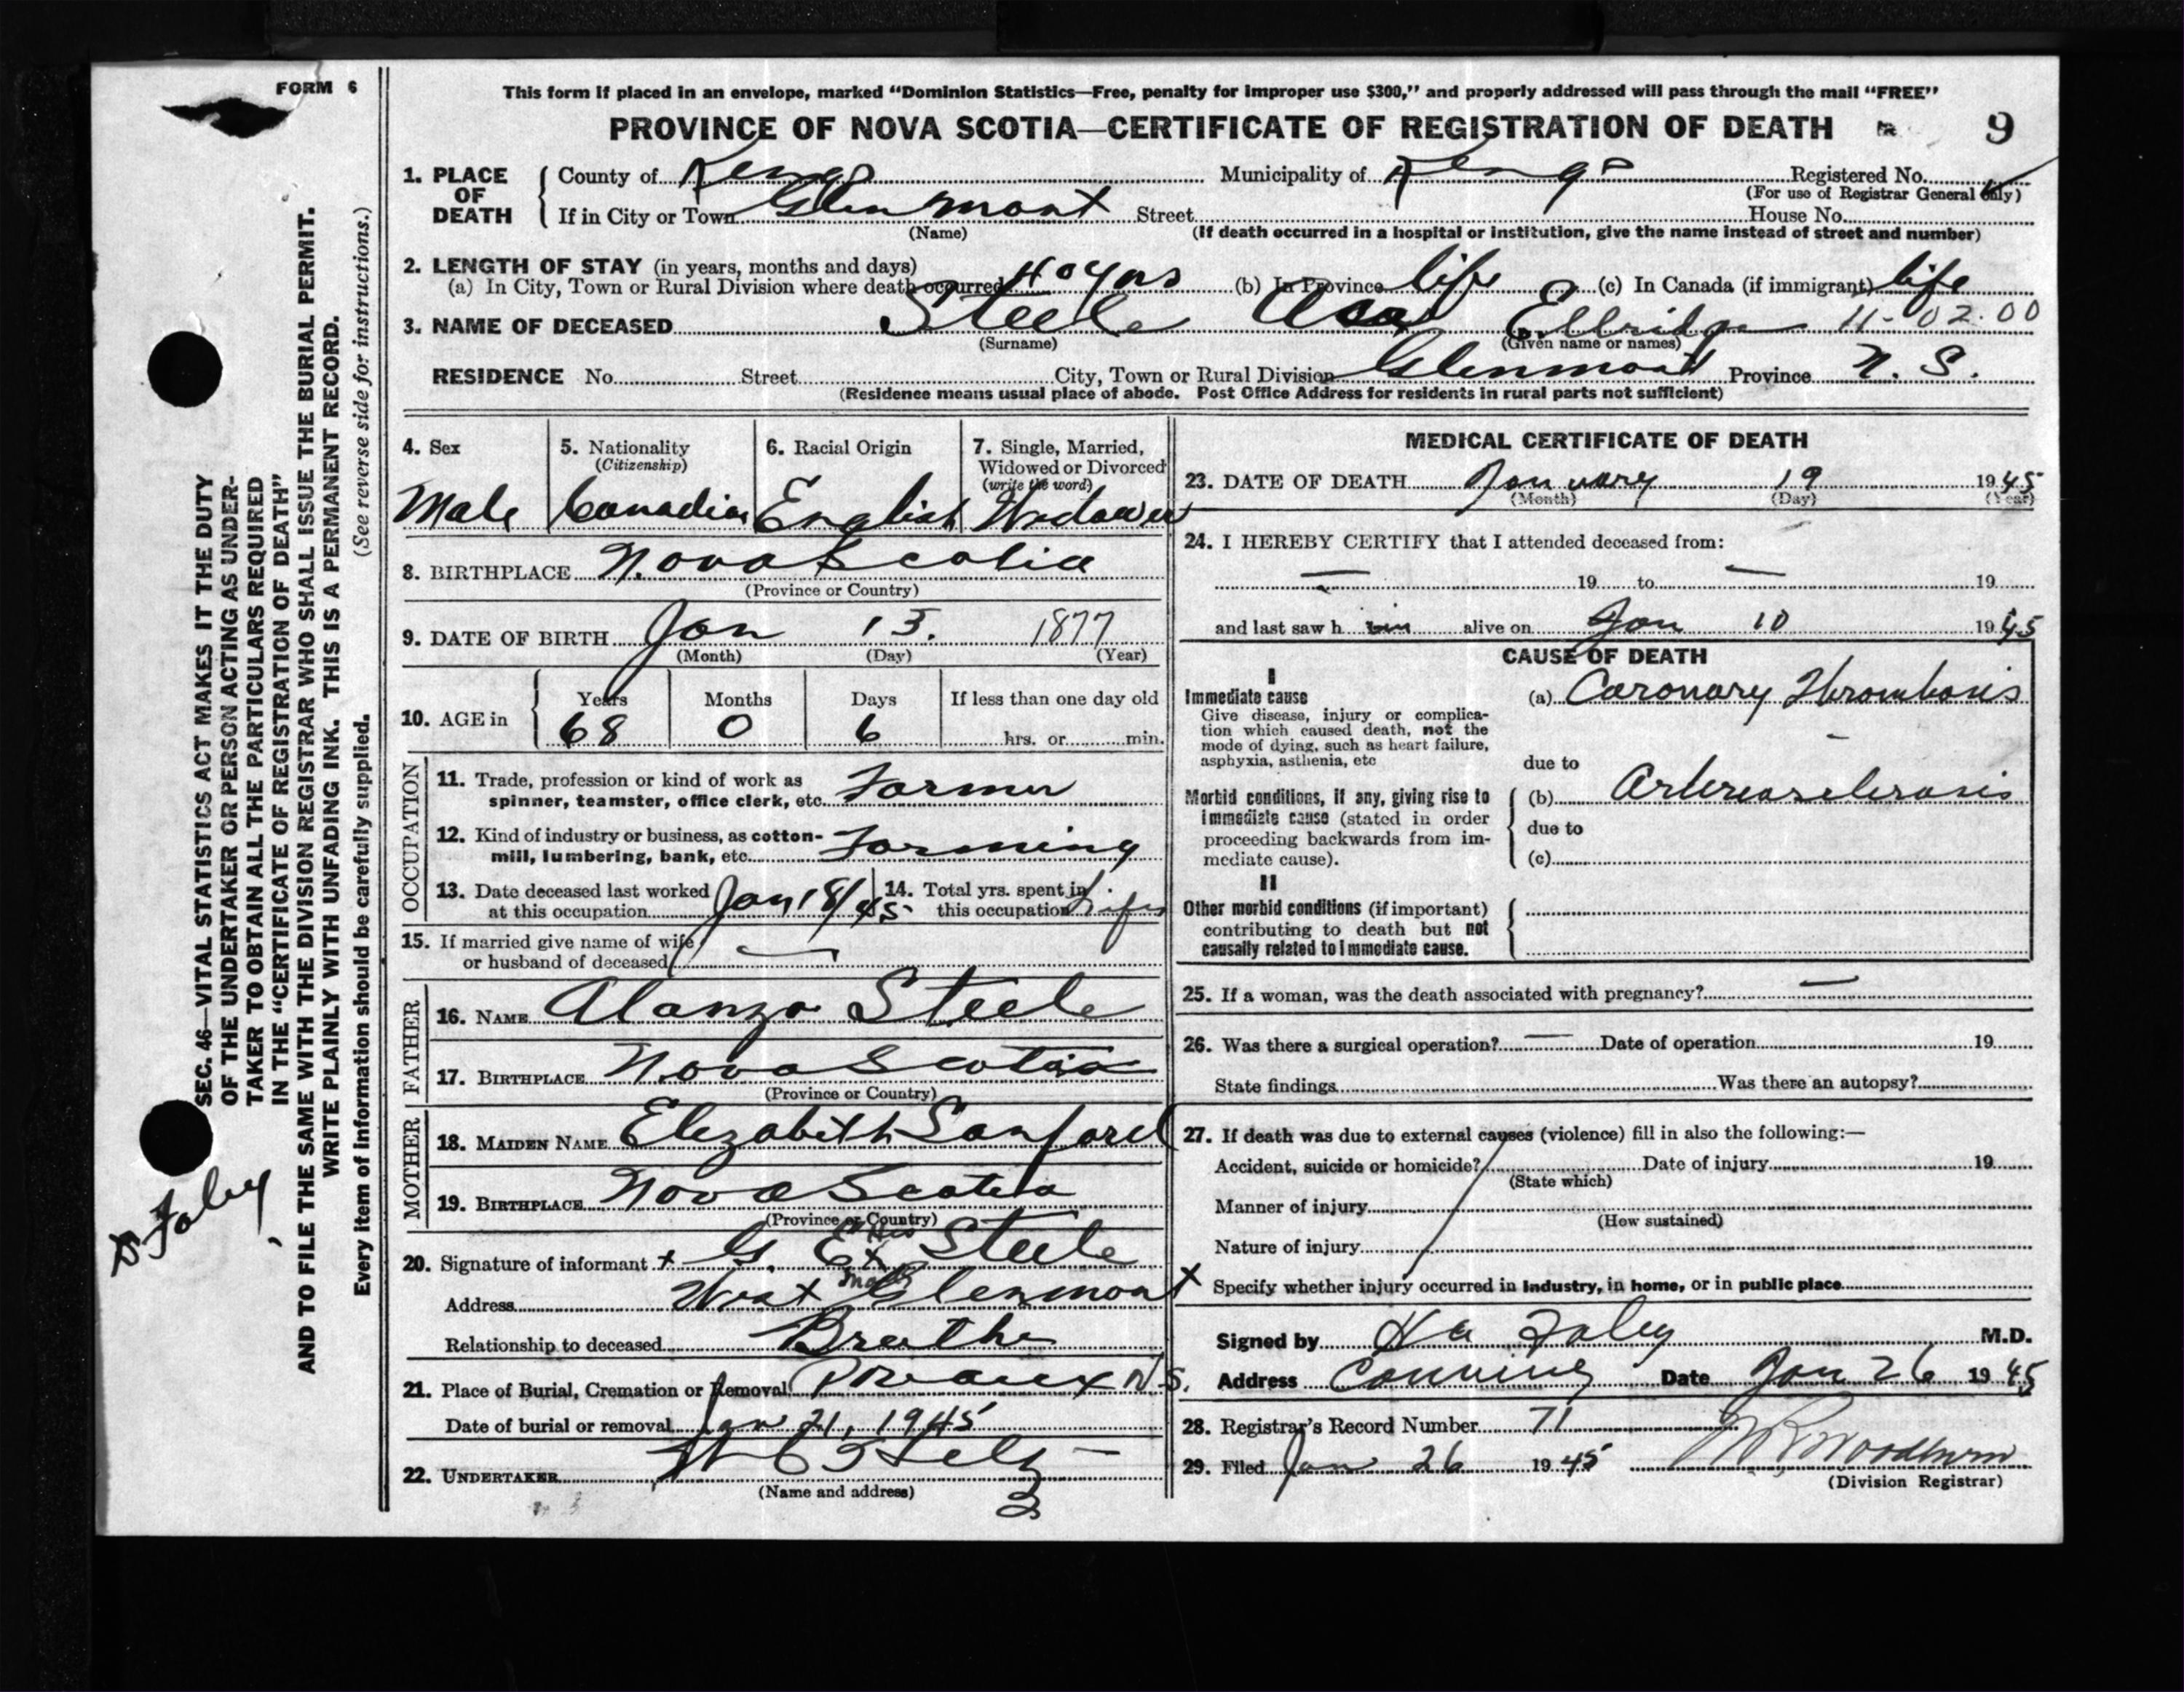 FORM 6
This form if placed in an envelope, marked "Dominion Statistics—Free, penalty for improper use $300," and properly addressed will pass through the mail "FREE"
PROVINCE OF NOVA SCOTIA—CERTIFICATE OF REGISTRATION OF DEATH 9
1. PLACE OF DEATH County of Kings Municipality of Kings Registered No.
(For use of Registrar General only)
If in City or Town Glenmont Street House No.
(Name) (If death occurred in a hospital or institution, give the name instead of street and number)
2. LENGTH OF STAY (in years, months and days)
(a) In City, Town or Rural Division where death occurred 40 yrs (b) In Province life (c) In Canada (if immigrant) life
3. NAME OF DECEASED Steele Asa Elbridge 11-02.00
(Surname) (Given name or names)
RESIDENCE No. Street City, Town or Rural Division Glenmont Province N. S.
(Residence means usual place of abode. Post Office Address for residents in rural parts not sufficient)
4. Sex 5. Nationality (Citizenship) 6. Racial Origin 7. Single, Married, Widowed or Divorced (write the word)
Male Canadian English Widower
8. BIRTHPLACE Nova Scotia
(Province or Country)
9. DATE OF BIRTH Jan 13. 1877
(Month) (Day) (Year)
10. AGE in Years Months Days If less than one day old
68 0 6 hrs. or min.
OCCUPATION
11. Trade, profession or kind of work as
spinner, teamster, office clerk, etc. Farmer
12. Kind of industry or business, as cotton-
mill, lumbering, bank, etc. Farming
13. Date deceased last worked at this occupation Jan 18/45 14. Total yrs. spent in this occupation Life
15. If married give name of wife
or husband of deceased —
FATHER
16. NAME Alanzo Steele
17. BIRTHPLACE Nova Scotia
(Province or Country)
MOTHER
18. MAIDEN NAME Elizabeth Sanford
19. BIRTHPLACE Nova Scotia
(Province or Country)
20. Signature of informant + G. E. Steele
His x mark
Address West Glenmont
Relationship to deceased Brother
21. Place of Burial, Cremation or Removal N.S.
Date of burial or removal Jan 21, 1945
22. UNDERTAKER
(Name and address)
MEDICAL CERTIFICATE OF DEATH
23. DATE OF DEATH January 19 1945
(Month) (Day) (Year)
24. I HEREBY CERTIFY that I attended deceased from:
— 19 to — 19
and last saw h im alive on Jan 10 1945
CAUSE OF DEATH
I
Immediate cause (a) Coronary Thrombosis
Give disease, injury or complica-
tion which caused death, not the
mode of dying, such as heart failure,
asphyxia, asthenia, etc due to
Morbid conditions, if any, giving rise to (b) Arteriosclerosis
immediate cause (stated in order due to
proceeding backwards from im-
mediate cause). (c)
II
Other morbid conditions (if important)
contributing to death but not
causally related to immediate cause.
25. If a woman, was the death associated with pregnancy? —
26. Was there a surgical operation? — Date of operation 19
State findings Was there an autopsy?
27. If death was due to external causes (violence) fill in also the following:—
Accident, suicide or homicide? Date of injury 19
(State which)
Manner of injury
(How sustained)
Nature of injury
x Specify whether injury occurred in industry, in home, or in public place
Signed by Foley M.D.
Address Canning Date Jan 26 1945
28. Registrar's Record Number 71
29. Filed Jan 26 1945 Woodburn
(Division Registrar)
SEC. 46—VITAL STATISTICS ACT MAKES IT THE DUTY
OF THE UNDERTAKER OR PERSON ACTING AS UNDER-
TAKER TO OBTAIN ALL THE PARTICULARS REQUIRED
IN THE "CERTIFICATE OF REGISTRATION OF DEATH"
AND TO FILE THE SAME WITH THE DIVISION REGISTRAR WHO SHALL ISSUE THE BURIAL PERMIT.
WRITE PLAINLY WITH UNFADING INK. THIS IS A PERMANENT RECORD.
Every item of information should be carefully supplied. (See reverse side for instructions.)
Foley